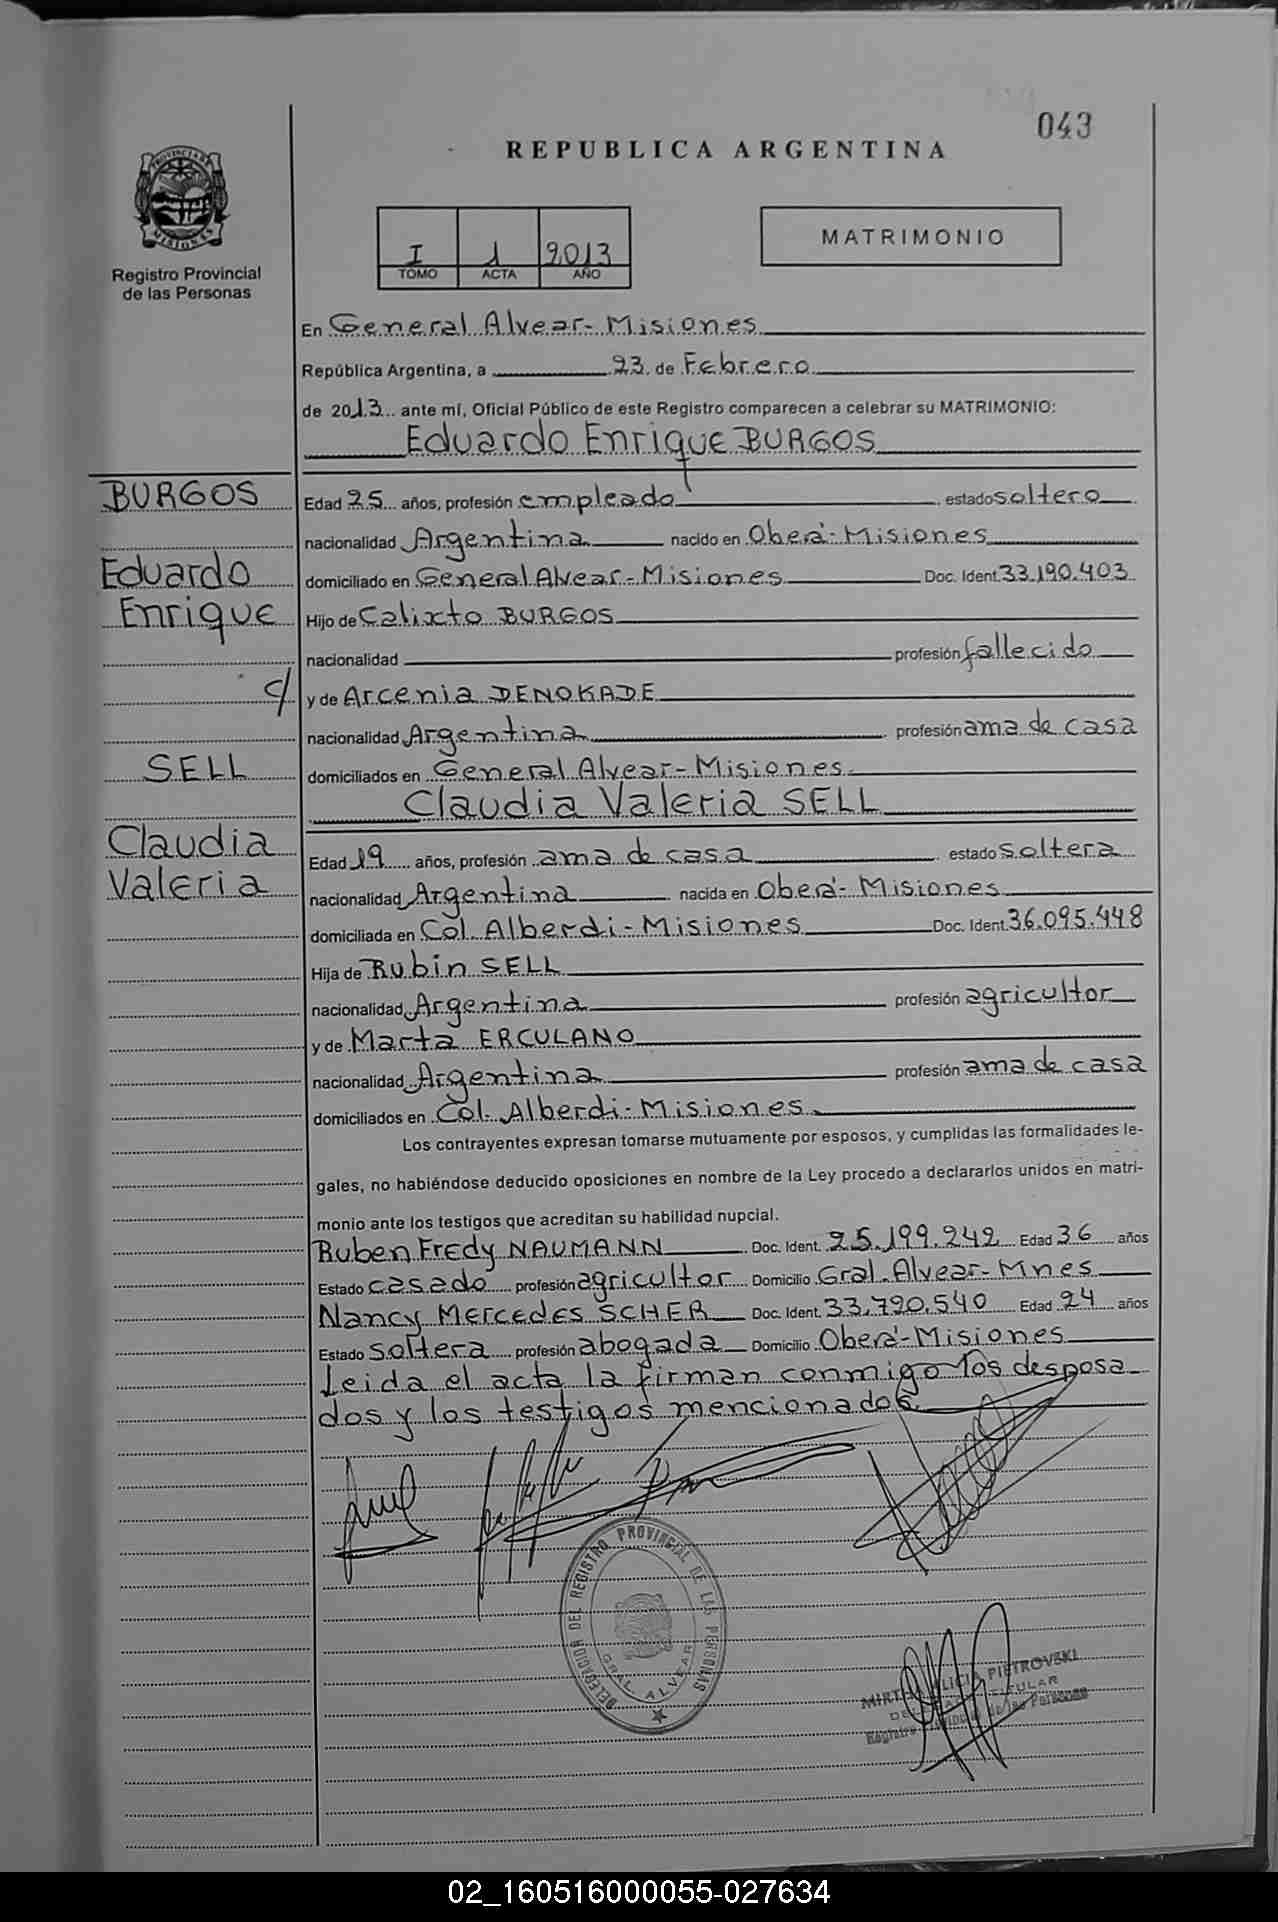 043
REPUBLICA ARGENTINA
PROVINCIA DE MISIONES
Registro Provincial
de las Personas
I 1 2013
TOMO ACTA AÑO
MATRIMONIO
En General Alvear-Misiones
República Argentina, a 23 de Febrero
de 2013 ante mí, Oficial Público de este Registro comparecen a celebrar su MATRIMONIO:
Eduardo Enrique BURGOS
BURGOS
Eduardo
Enrique
c/
SELL
Claudia
Valeria
Edad 25 años, profesión empleado estado soltero
nacionalidad Argentina nacido en Oberá-Misiones
domiciliado en General Alvear-Misiones Doc. Ident. 33.190.403
Hijo de Calixto BURGOS
nacionalidad profesión fallecido
y de Arcenia DENOKADE
nacionalidad Argentina profesión ama de casa
domiciliados en General Alvear-Misiones
Claudia Valeria SELL
Edad 19 años, profesión ama de casa estado soltera
nacionalidad Argentina nacida en Oberá-Misiones
domiciliada en Col. Alberdi-Misiones Doc. Ident. 36.095.448
Hija de Rubin SELL
nacionalidad Argentina profesión agricultor
y de Marta ERCULANO
nacionalidad Argentina profesión ama de casa
domiciliados en Col. Alberdi-Misiones
Los contrayentes expresan tomarse mutuamente por esposos, y cumplidas las formalidades le-
gales, no habiéndose deducido oposiciones en nombre de la Ley procedo a declararlos unidos en matri-
monio ante los testigos que acreditan su habilidad nupcial.
Ruben Fredy NAUMANN Doc. Ident. 25.199.242 Edad 36 años
Estado casado profesión agricultor Domicilio Gral. Alvear-Mnes
Nancy Mercedes SCHER Doc. Ident. 33.790.540 Edad 24 años
Estado soltera profesión abogada Domicilio Oberá-Misiones
Leida el acta la firman conmigo los desposa-
dos y los testigos mencionados
DELEGACION DEL REGISTRO PROVINCIAL DE LAS PERSONAS
GRAL. ALVEAR
MIRTHA ALICIA PIETROVSKI
DELEGADA TITULAR
Registro Provincial de las Personas
02_160516000055-027634